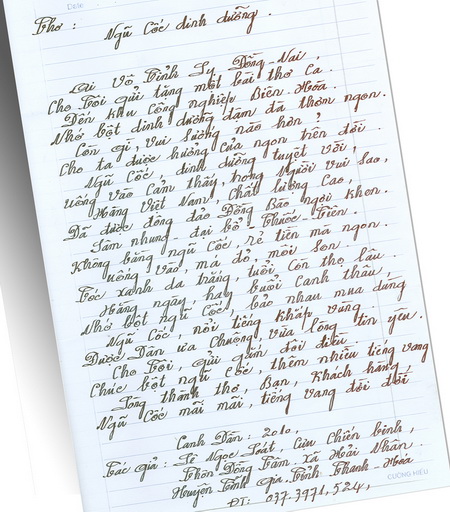 Date
Thơ :
Ngũ Cốc dinh dưỡng .
Lai Vô Tình Ty Đồng Nai,
Cho Tôi gửi tặng một bài thơ Ca.
Đến khu Công nghiệp Biên Hòa.
Nhớ bột dinh dưỡng đậm đà thơm ngon.
Còn gì, vui sướng nào hơn,
Cho ta được hưởng của ngon trên đời.
Ngũ Cốc, dinh dưỡng tuyệt vời,
Uống vào Cảm thấy, trong Người vui sao,
Hàng Việt Nam, Chất lượng Cao,
Đã được đông đảo Đồng Bào ngợi khen.
Sâm nhung - đại bổ - Thuốc - Tiên.
Không bằng ngũ Cốc, rẻ tiền mà ngon.
Uống vào, má đỏ, môi Son.
Tóc xanh da trắng, tuổi Còn thọ lâu.
Hàng ngày, hay buổi Canh thâu,
Nhớ bột ngũ Cốc, bảo nhau mua dùng
Ngũ Cốc, nổi tiếng khắp vùng.
Được Dân ưa Chuộng, vừa lòng tin yêu.
Cho Tôi, gửi gắm đôi điều
Chúc bột ngũ cốc, thêm nhiều tiếng vang
Lòng thành thơ, Bạn, Khách hàng,
Ngũ Cốc mãi mãi, tiếng vang đời đời
Canh Dần : 2010,
Tác giả : Lê Ngọc Soát, Cựu Chiến binh,
Thôn Đồng Tâm xã Hải Nhân.
Huyện Tĩnh Gia. Tỉnh Thanh Hóa
ĐT: 037.3971,524,
CƯỜNG HIẾU